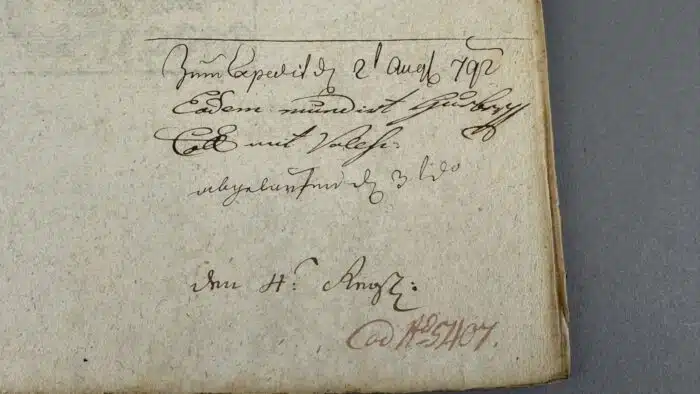 Zum Expedit den 2t Augst 792
Eodem mundirt
Coll mit
abgelaufen den 3t do
den 4t Regz:
Cod No 5407.